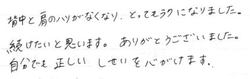 背中と肩のハリがなくなり、とってもラクになりました。
続けたいと思います。ありがとうございました。
自分でも正しいしせいを心がけます。